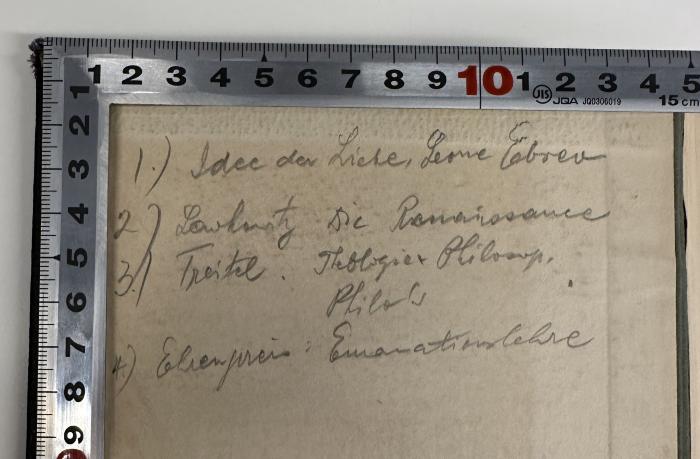 1 2 3 4 5 6 7 8 9 10 1 2 3 4 5
JIS JQA JQ0306019 15 cm
1
2
3
4
5
6
7
8
9
1.) Idee der Liebe, Leone Ebreo
2) Die Renaissance
3.) Treitel. Theologie & Philosop.
Philo's
4) Ehrenpreis: Emanationslehre